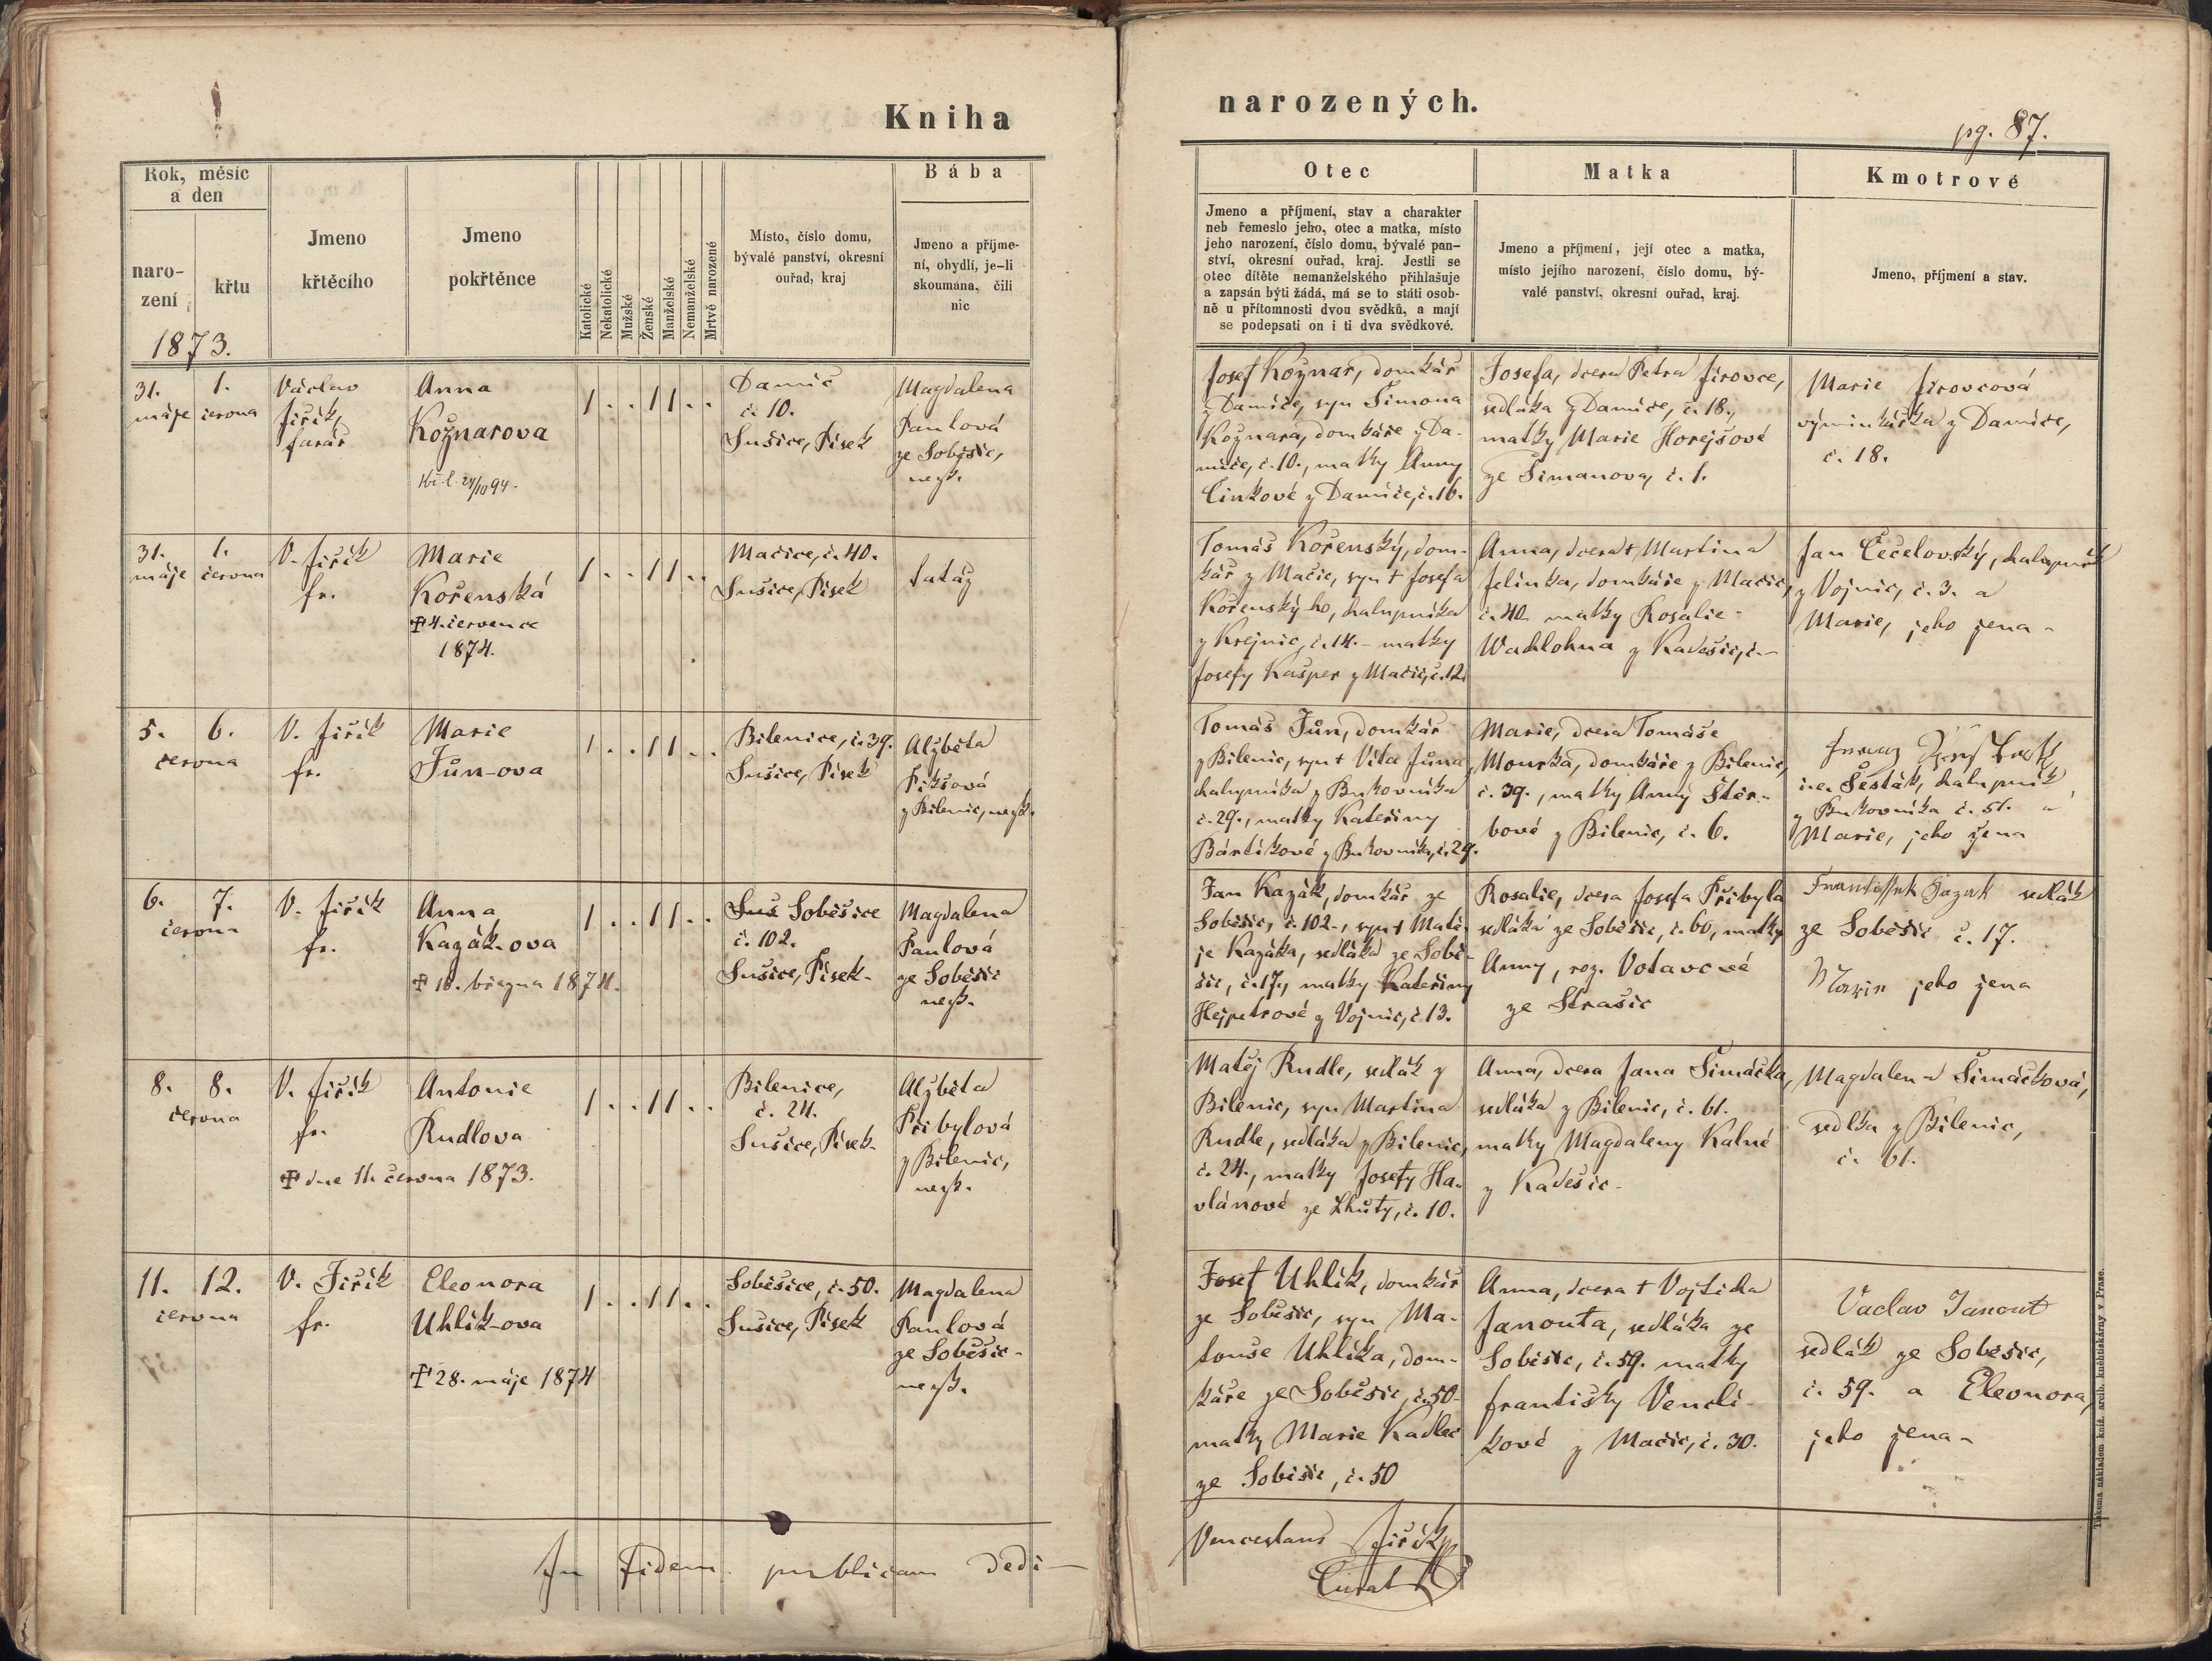 Kniha
narozených.
pg. 87.
Rok, měsíc
a den
naro-
zení
křtu
1873.
Jmeno
křtěcího
Jmeno
pokřtěnce
Katolické
Nekatolické
Mužské
Ženské
Manželské
Nemanželské
Mrtvě narozené
Místo, číslo domu,
bývalé panství, okresní
ouřad, kraj
Bába
Jmeno a příjme-
ní, obydlí, je-li
skoumána, čili
nic
Otec
Jmeno a příjmení, stav a charakter
neb řemeslo jeho, otec a matka, místo
jeho narození, číslo domu, bývalé pan-
ství, okresní ouřad, kraj. Jestli se
otec dítěte nemanželského přihlašuje
a zapsán býti žádá, má se to státi osob-
ně u přítomnosti dvou svědků, a mají
se podepsati on i ti dva svědkové.
Matka
Jmeno a příjmení, její otec a matka,
místo jejího narození, číslo domu, bý-
valé panství, okresní ouřad, kraj.
Kmotrové
Jmeno, příjmení a stav.
31.
máje
1.
června
Václav
Jiřík,
farář
Anna
Kožnarova
24/10 94.
1 . . 1 1 . .
Damíč
č. 10.
Sušice, Písek
Magdalena
Pavlová
ze Soběšic,
nezk.
Josef Kožnar, domkář
z Damíče, syn Šimona
Kožnara, domkáře z Da-
míče, č. 10., matky Anny
Činkové z Damíče, č. 16.
Josefa, dcera Petra Jirovce,
sedláka z Damíče, č. 18.,
matky Marie Horejšové
ze Šimanova, č. 1.
Marie Jirovcová
výminkářka z Damíče,
č. 18.
31.
máje
1.
června
V. Jiřík
fr.
Marie
Kořenská
✝ 4. července
1874.
1 . . 1 1 . .
Mačice, č. 40.
Sušice, Písek
Tomáš Kořenský, dom-
kář z Mačic, syn ✝ Josefa
Kořenskýho, chalupníka
z Krejnic, č. 14. - matky
Josefy Kašper z Mačic, č. 12.
Anna, dcera ✝ Martina
Jelínka, domkáře z Mačic,
č. 40. matky Rosalie -
z Kadešic, č. -
Jan Čečelovský, chalupník
z Vojnic, č. 3. a
Marie, jeho žena -
5.
června
6.
V. Jiřík
fr.
Marie
Jůn-ova
1 . . 1 1 . .
Bilenice, č. 39.
Sušice, Písek
Alžběta
Pikšová
z Bilenic, nezk.
Tomáš Jůn, domkář
z Bilenic, syn ✝ Víta Jůna,
chalupníka z Bukovníka
č. 29., matky Kateřiny
Bártíkové z Bukovníka, č. 29.
Marie, dcera Tomáše
Mourka, domkáře z Bilenic,
č. 39., matky Anny Štěr-
bové z Bilenic, č. 6.
i.e. Šesták, chalupník
z Bukovníka č. 51. a
Marie, jeho žena
6.
června
7.
V. Jiřík
fr.
Anna
Kazák-ova
✝ 18. března 1874.
1 . . 1 1 . .
Suš Soběšice
č. 102.
Sušice, Písek -
Magdalena
Pavlová
ze Soběšic
nezk.
Jan Kazák, domkář ze
Soběšic, č. 102., syn ✝ Matě-
je Kazáka, sedláka ze Sobě-
šic, č. 17., matky Kateřiny
Hejpetrové z Vojnic, č. 13.
Rosalie, dcera Josefa Přibyla
sedláka ze Soběšic, č. 60, matky
Anny, roz. Votavové
ze Strašic
Frantissek Kazak sedlák
ze Soběšic č. 17.
Marie jeho žena
8.
června
8.
V. Jiřík
fr.
Antonie
Rudlova
✝ dne 11. června 1873.
1 . . 1 1 . .
Bilenice,
č. 24.
Sušice, Písek -
Alžběta
Přibylová
z Bilenic,
nezk.
Matěj Rudle, sedlák z
Bilenic, syn Martina
Rudle, sedláka z Bilenic,
č. 24., matky Josefy Ha-
vlánové ze Lhůty, č. 10.
Anna, dcera Jana Šimáčka,
sedláka z Bilenic, č. 61.
matky Magdaleny Kalné
z Kadešic -
Magdalena Šimáčková,
sedlka z Bilenic,
č. 61.
11.
června
12.
V. Jiřík
fr.
Eleonora
Uhlík-ova
✝ 28. máje 1874
1 . . 1 1 . .
Soběšice, č. 50.
Sušice, Písek
Magdalena
Pavlová
ze Soběšic -
nezk.
Josef Uhlík, domkář
ze Soběšic, syn Ma-
touše Uhlíka, dom-
káře ze Soběšic, č. 50 -
matky Marie Kadlec
ze Soběšic, č. 50
Anna, dcera ✝ Vojtěcha
Janouta, sedláka ze
Soběšic, č. 59. matky
Františky Vencli-
kové z Mačic, č. 30.
Vaclav Janout
sedlák ze Soběšic,
č. 59. a Eleonora,
jeho žena -
In fidem publicam dedi -
Venceslaus Jiřík
Curat
Tiskem a nákladem kníž. arcib. knihtiskárny v Praze.